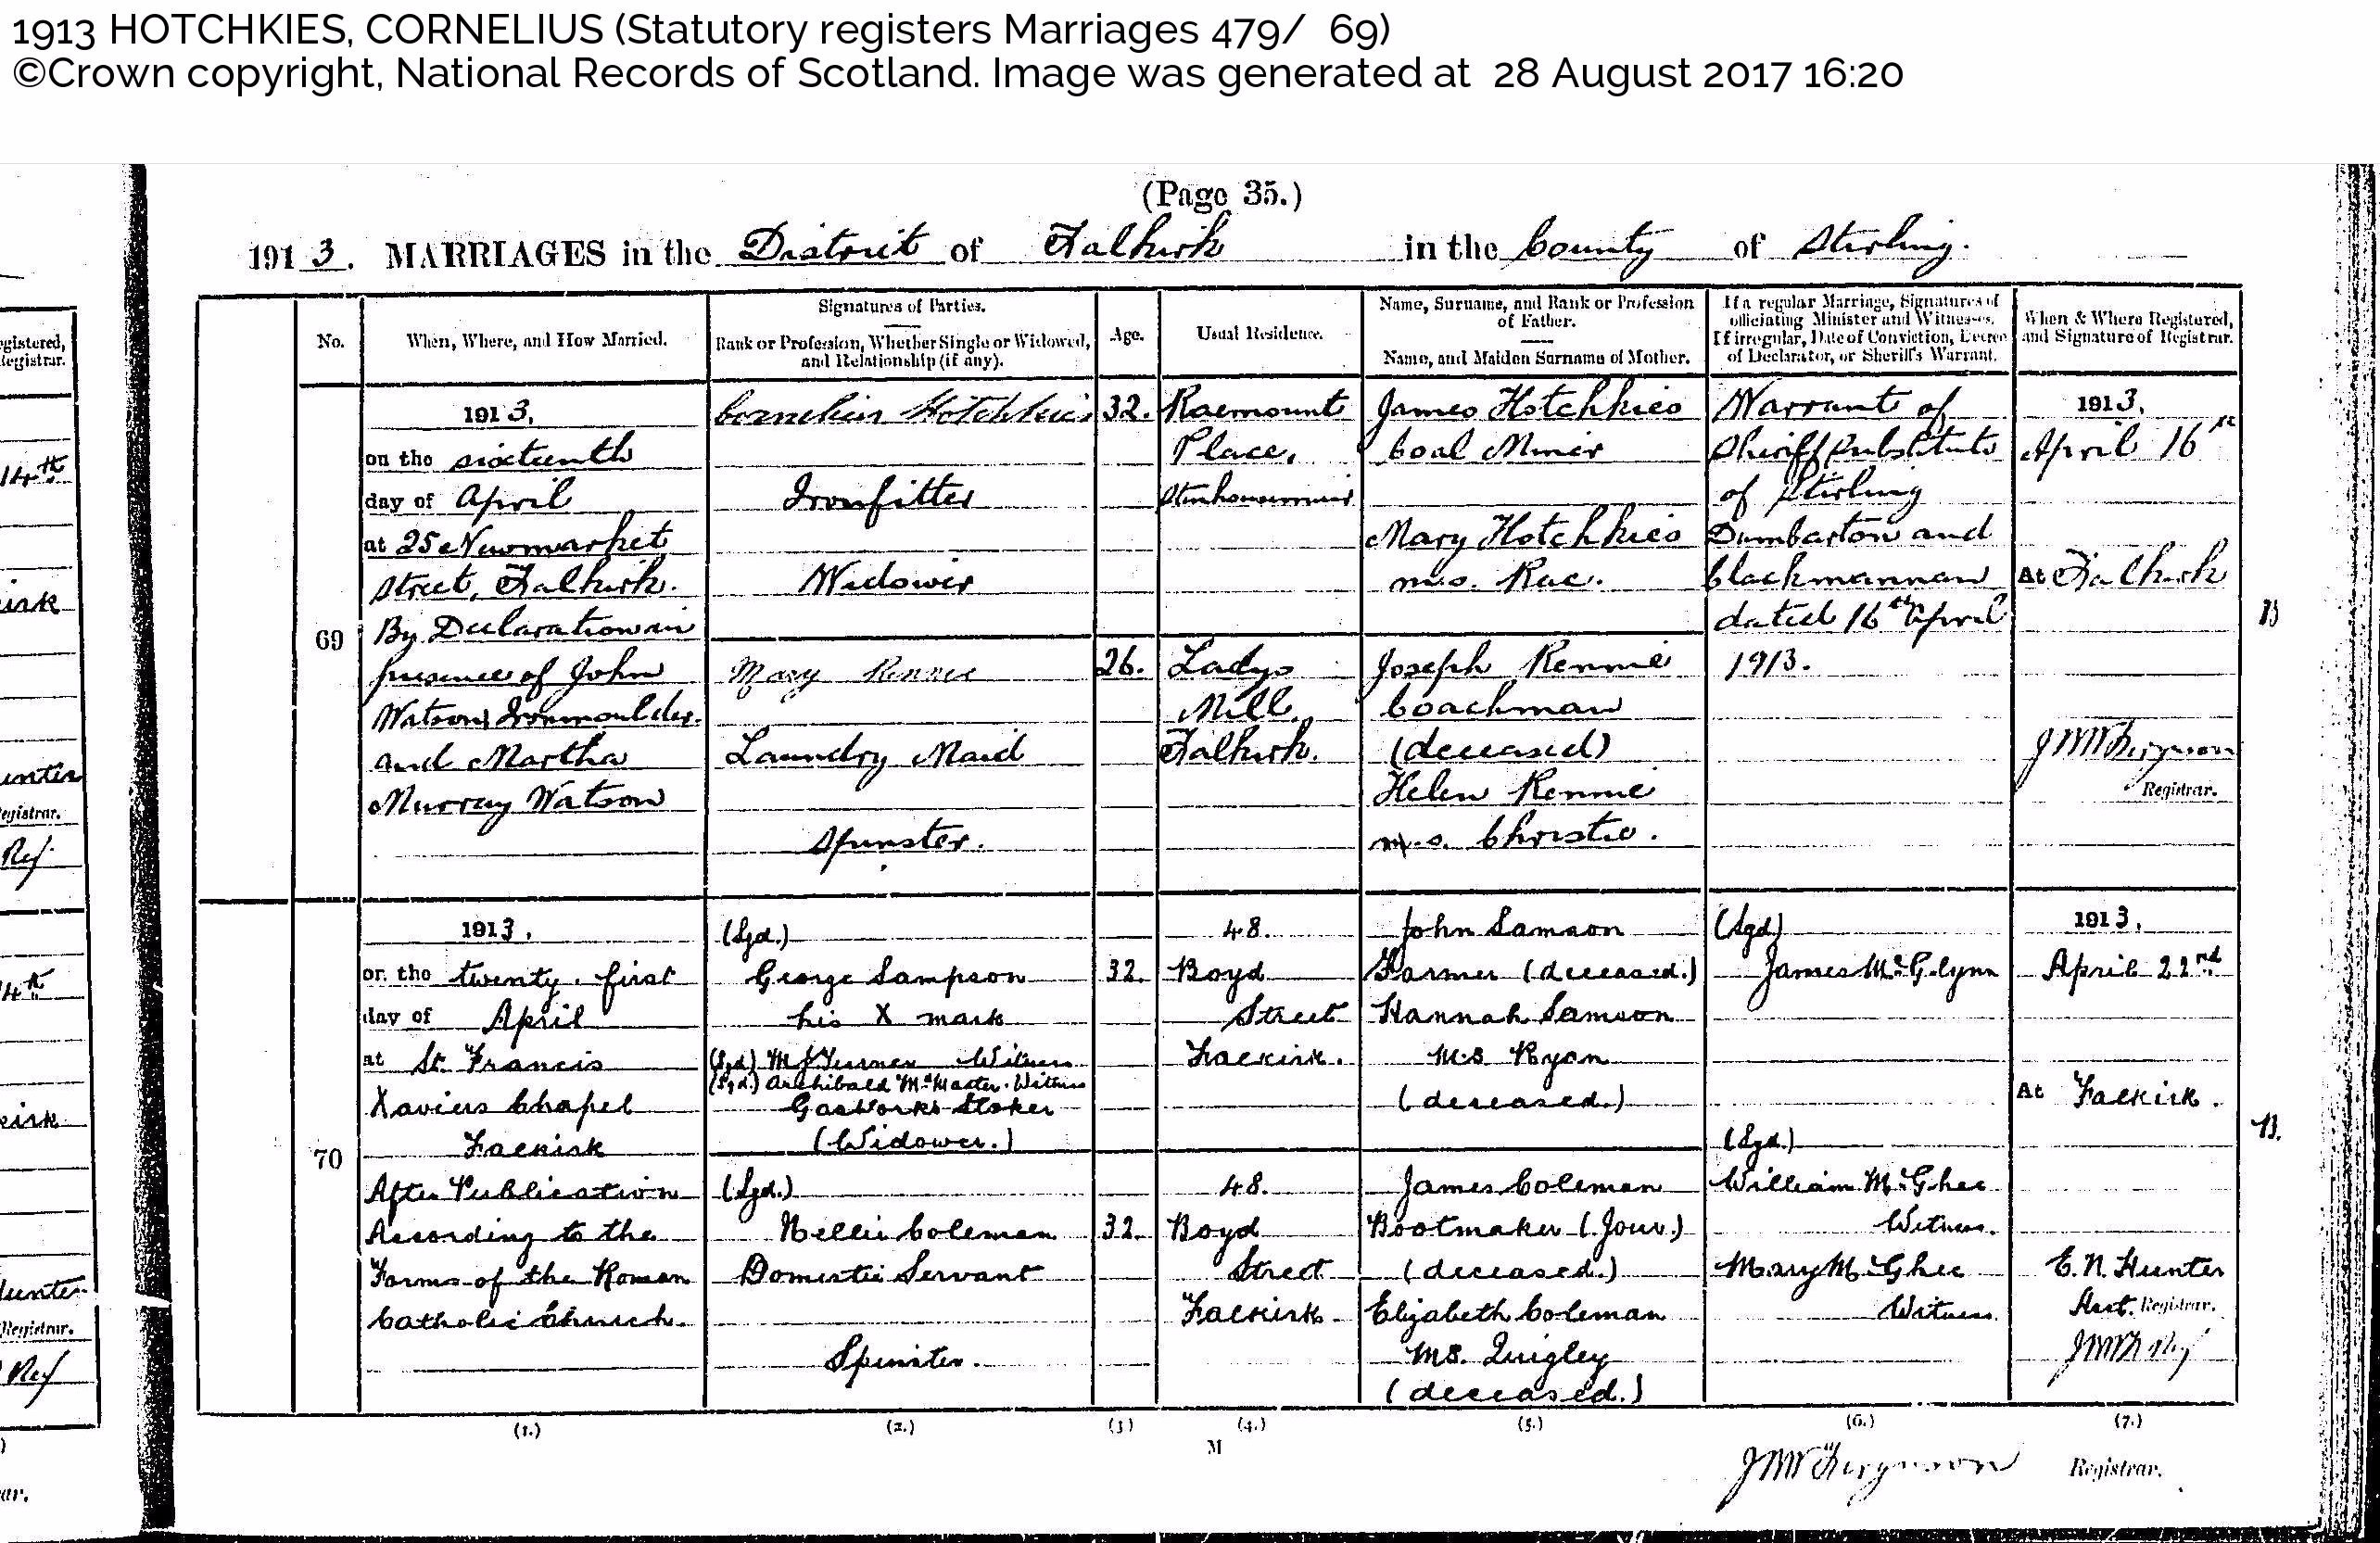 1913 HOTCHKIES, CORNELIUS (Statutory registers Marriages 479/ 69)
©Crown copyright, National Records of Scotland. Image was generated at 28 August 2017 16:20
(Page 35.)
1913. MARRIAGES in the District of Falkirk in the County of Stirling.
No.
When, Where, and How Married.
Signatures of Parties.
Rank or Profession, Whether Single or Widowed,
and Relationship (if any).
Age.
Usual Residence.
Name, Surname, and Rank or Profession
of Father.
Name, and Maiden Surname of Mother.
If a regular Marriage, Signatures of
officiating Minister and Witnesses.
If irregular, Date of Conviction, Decree
of Declarator, or Sheriff's Warrant.
When & Where Registered,
and Signature of Registrar.
69
1913,
on the sixteenth
day of April
at 25 Newmarket
Street, Falkirk.
By Declaration in
presence of John
Watson, Ironmoulder
and Martha
Murray Watson
Cornelius Hotchkies
Ironfitter
Widower
32.
Raemount
Place,
Stenhousemuir
James Hotchkies
Coal Miner
Mary Hotchkies
m.s. Rae.
Mary Rennie
Laundry Maid
Spinster.
26.
Ladys
Mill
Falkirk.
Joseph Rennie
Coachman
(deceased)
Helen Rennie
m.s. Christie.
Warrant of
Sheriff Substitute
of Stirling
Dumbarton and
Clackmannan
dated 16th April
1913.
1913,
April 16th
At Falkirk
J M W Ferguson
Registrar.
B
70
1913,
on the twenty-first
day of April
at St. Francis
Xaviers Chapel
Falkirk
After Publication
According to the
Forms of the Roman
Catholic Church.
(Sgd.)
George Sampson
his X mark
(Sgd.) M J Turner Witness
(Sgd.) Archibald McMaster. Witness
Gasworks Stoker
(Widower.)
32.
48.
Boyd
Street
Falkirk.
John Samson
Farmer (deceased.)
Hannah Samson
M.S. Ryan
(deceased.)
(Sgd.)
Nellie Coleman
Domestic Servant
Spinster.
32.
48.
Boyd
Street
Falkirk
James Coleman
Bootmaker (Jour.)
(deceased.)
Elizabeth Coleman
M.S. Quigley
(deceased.)
(Sgd.)
James McGlynn
(Sgd.)
William McGhee
Witness.
Mary McGhee
Witness.
1913,
April 22nd
At Falkirk.
E. N. Hunter
Asst. Registrar.
B.
(1.) (2.) (3) (4.) (5.) (6.) (7.)
M
J M W Ferguson Registrar.